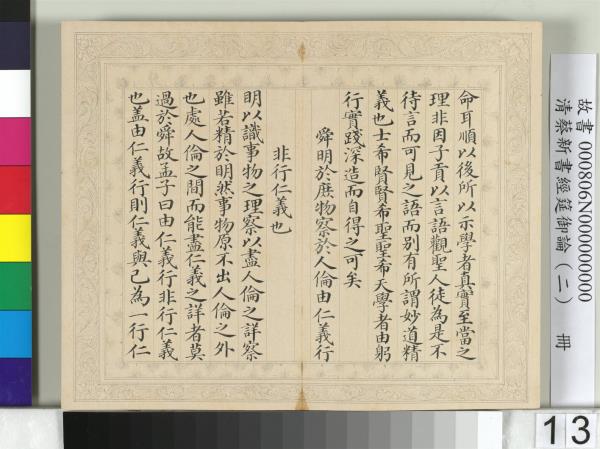 命耳順以後所以示學者真實至當之
理非因子貢以言語觀聖人徒為是不
待言而可見之語而別有所謂妙道精
義也士希賢賢希聖聖希天學者由躬
行實踐深造而自得之可矣
舜明於庶物察於人倫由仁義行
非行仁義也
明以識事物之理察以盡人倫之詳察
雖若精於明然事物原不出人倫之外
也處人倫之間而能盡仁義之詳者莫
過於舜故孟子曰由仁義行非行仁義
也蓋由仁義行則仁義與己為一行仁
故書 000806N000000000
清蔡新書經筵御論（二） 冊
13